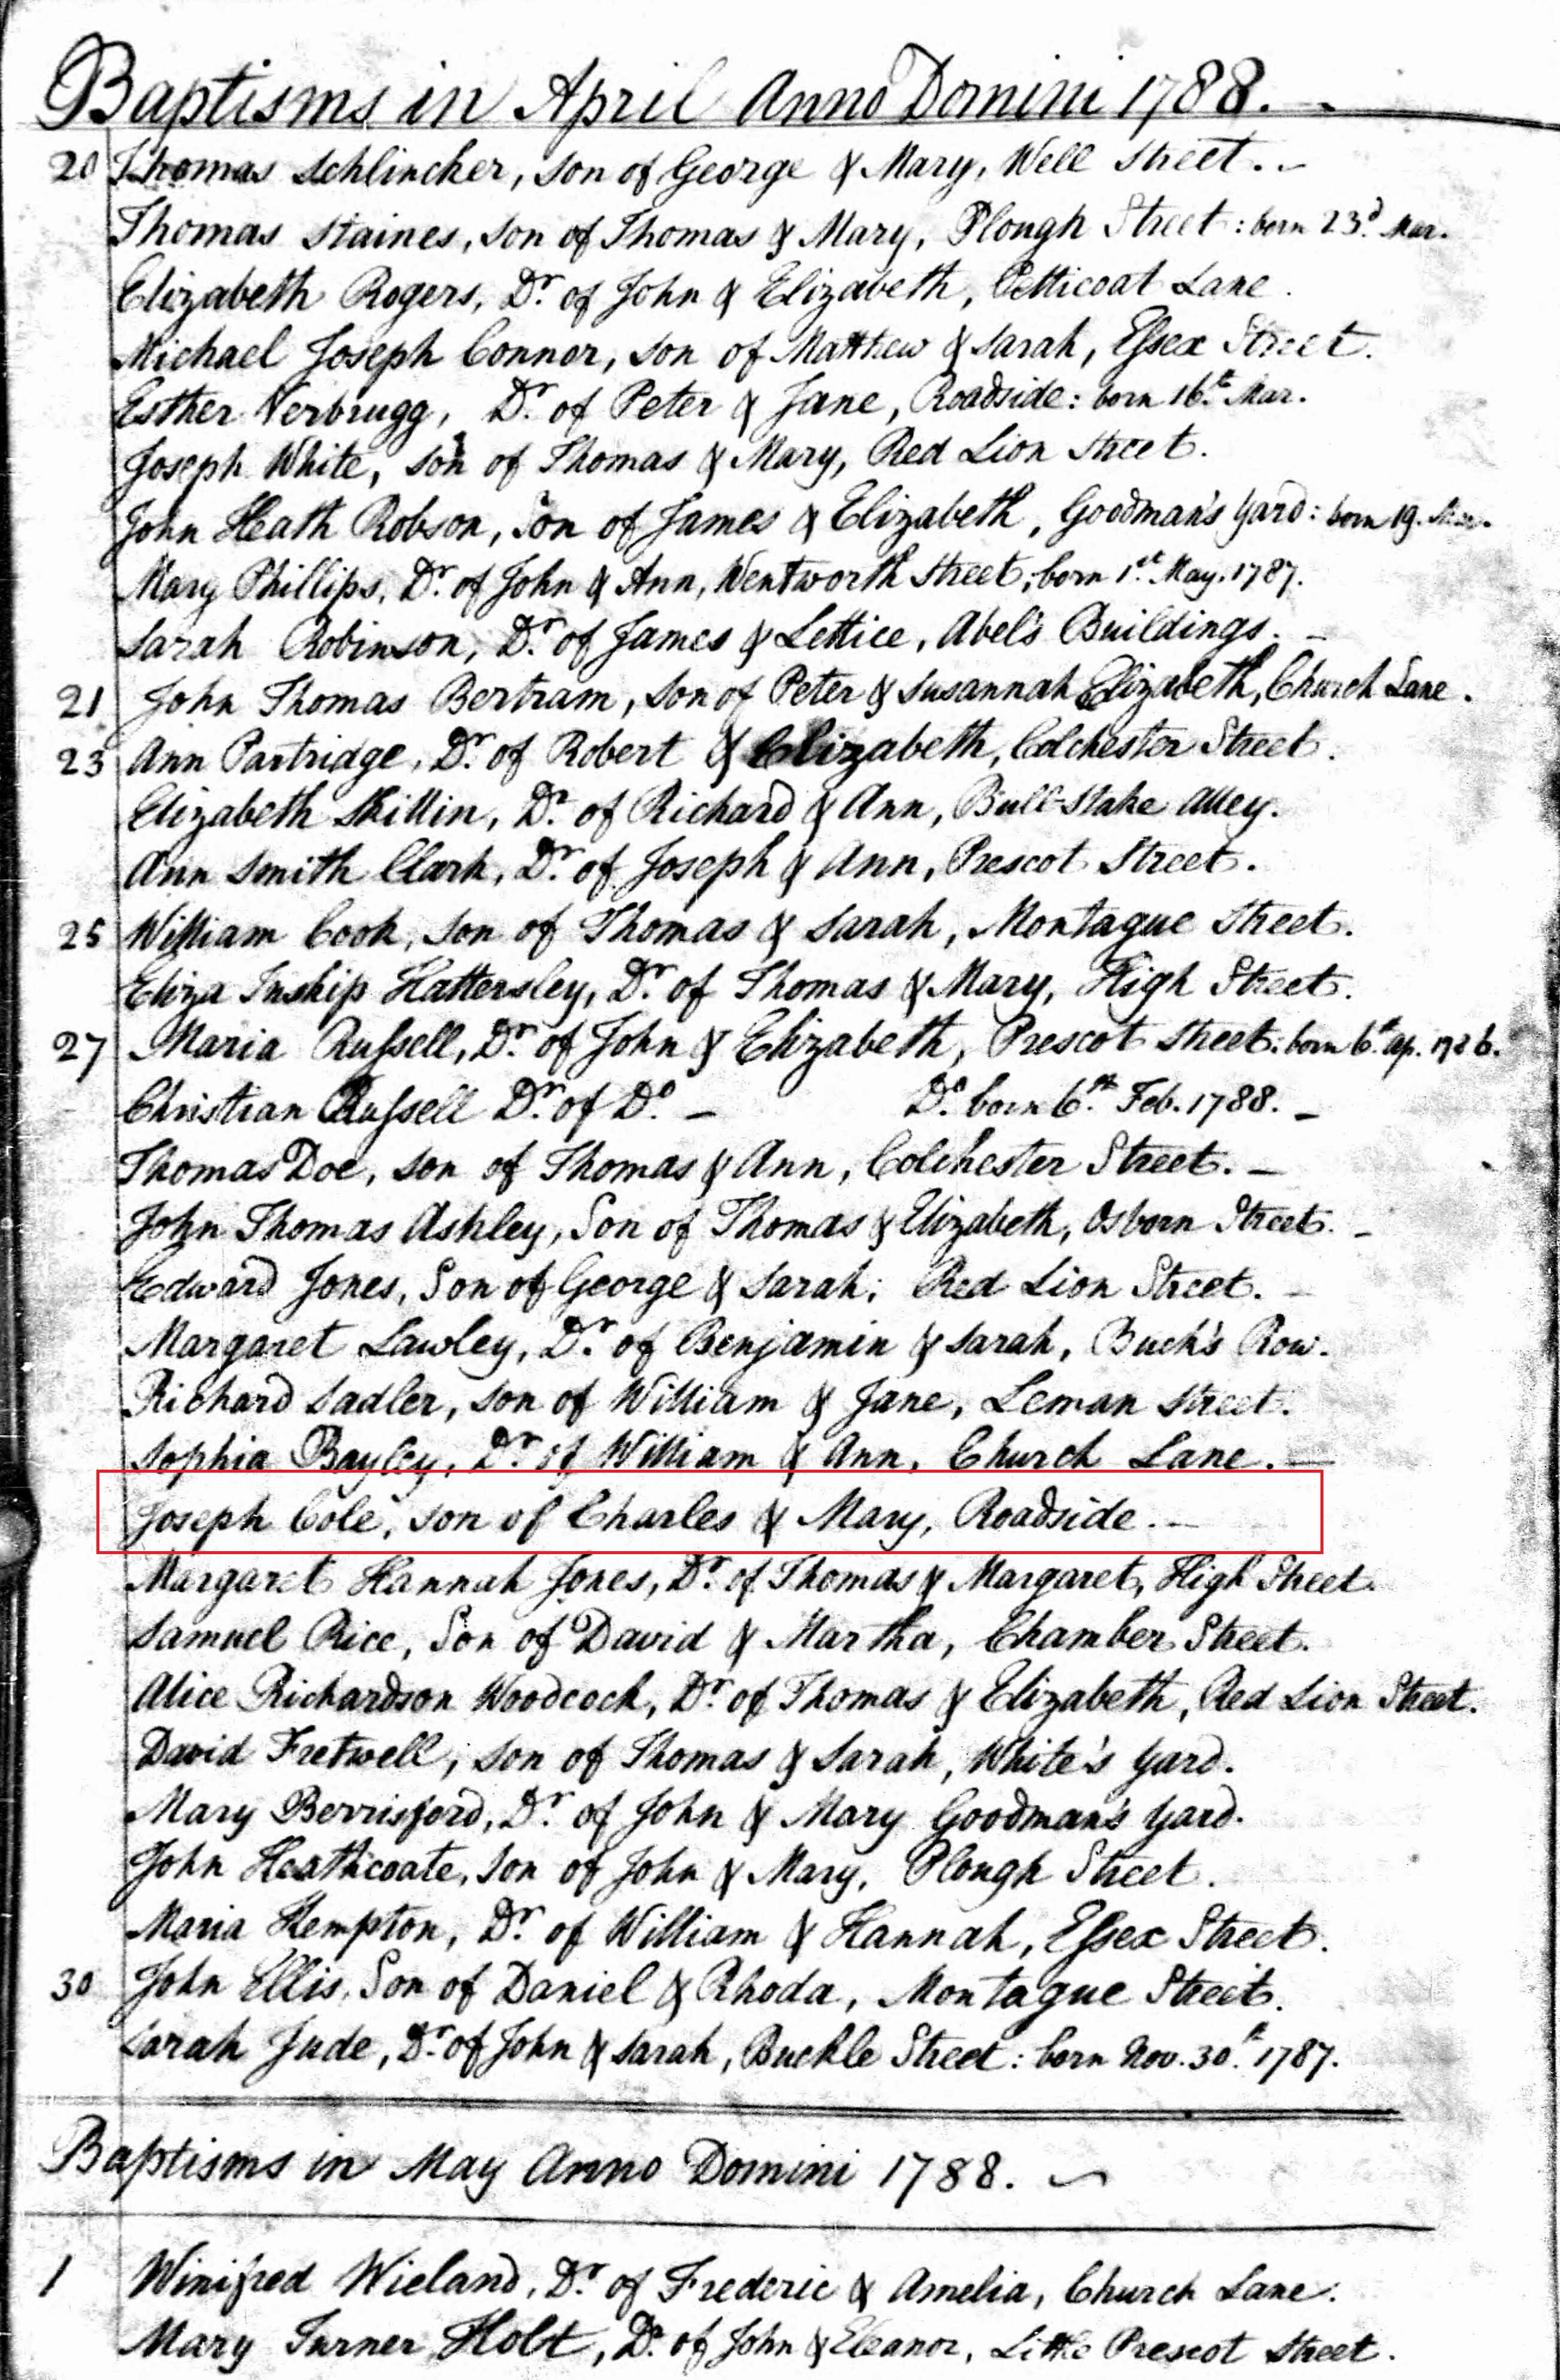 Baptisms in April Anno Domini 1788.
20 Thomas Schlincker, son of George & Mary, Well Street.
Thomas Staines, son of Thomas & Mary, Plough Street: born 23.d Mar.
Elizabeth Rogers, Dr. of John & Elizabeth, Petticoat Lane.
Michael Joseph Connor, son of Matthew & Sarah, Essex Street.
Esther Verbrugg, Dr. of Peter & Jane, Roadside: born 16.th Mar.
Joseph White, son of Thomas & Mary, Red Lion Street.
John Heath Robson, Son of James & Elizabeth, Goodman's Yard: born 19. Mar.
Mary Phillips, Dr. of John & Ann, Wentworth Street; born 1.st May. 1787.
Sarah Robinson, Dr. of James & Lettice, Abel's Buildings. –
21 John Thomas Bertram, son of Peter & Susannah Elizabeth, Church Lane.
23 Ann Partridge, Dr. of Robert & Elizabeth, Colchester Street.
Elizabeth Skillin, Dr. of Richard & Ann, Bull-Stake Alley.
Ann Smith Clark, Dr. of Joseph & Ann, Prescot Street.
25 William Cook, son of Thomas & Sarah, Montague Street.
Eliza Inskip Hattersley, Dr. of Thomas & Mary, High Street.
27 Maria Russell, Dr. of John & Elizabeth, Prescot Street: born 6.th Ap. 1786.
Christian Russell Dr. of Do. – Do. born 6.th Feb. 1788. –
Thomas Doe, son of Thomas & Ann, Colchester Street. –
John Thomas Ashley, Son of Thomas & Elizabeth, Osborn Street. –
Edward Jones, Son of George & Sarah; Red Lion Street. –
Margaret Lawley, Dr. of Benjamin & Sarah, Buck's Row.
Richard Sadler, son of William & Jane, Leman Street.
Sophia Bayley, Dr. of William & Ann, Church Lane. –
Joseph Cole, son of Charles & Mary, Roadside. –
Margaret Hannah Jones, Dr. of Thomas & Margaret, High Street.
Samuel Rice, Son of David & Martha, Chamber Street.
Alice Richardson Woodcock, Dr. of Thomas & Elizabeth, Red Lion Street.
David Fretwell, son of Thomas & Sarah, White's Yard.
Mary Berrisford, Dr. of John & Mary Goodman's Yard.
John Heathcoate, son of John & Mary, Plough Street.
Maria Hempton, Dr. of William & Hannah, Essex Street.
30 John Ellis, Son of Daniel & Rhoda, Montague Street.
Sarah Jude, Dr. of John & Sarah, Buckle Street: born Nov. 30.th 1787.
Baptisms in May Anno Domini 1788.
1 Winifred Wieland, Dr. of Frederic & Amelia, Church Lane.
Mary Turner Holt, Dr. of John & Eleanor, Little Prescot Street.